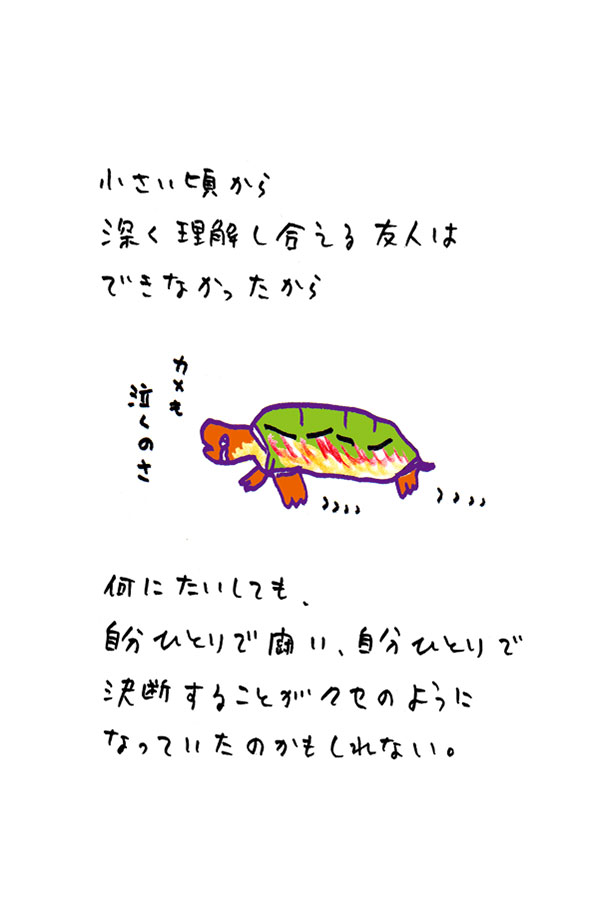 小さい頃から
深く理解し合える友人は
できなかったから
カメも
泣くのさ
何にたいしても、
自分ひとりで闘い、自分ひとりで
決断することがクセのように
なっていたのかもしれない。